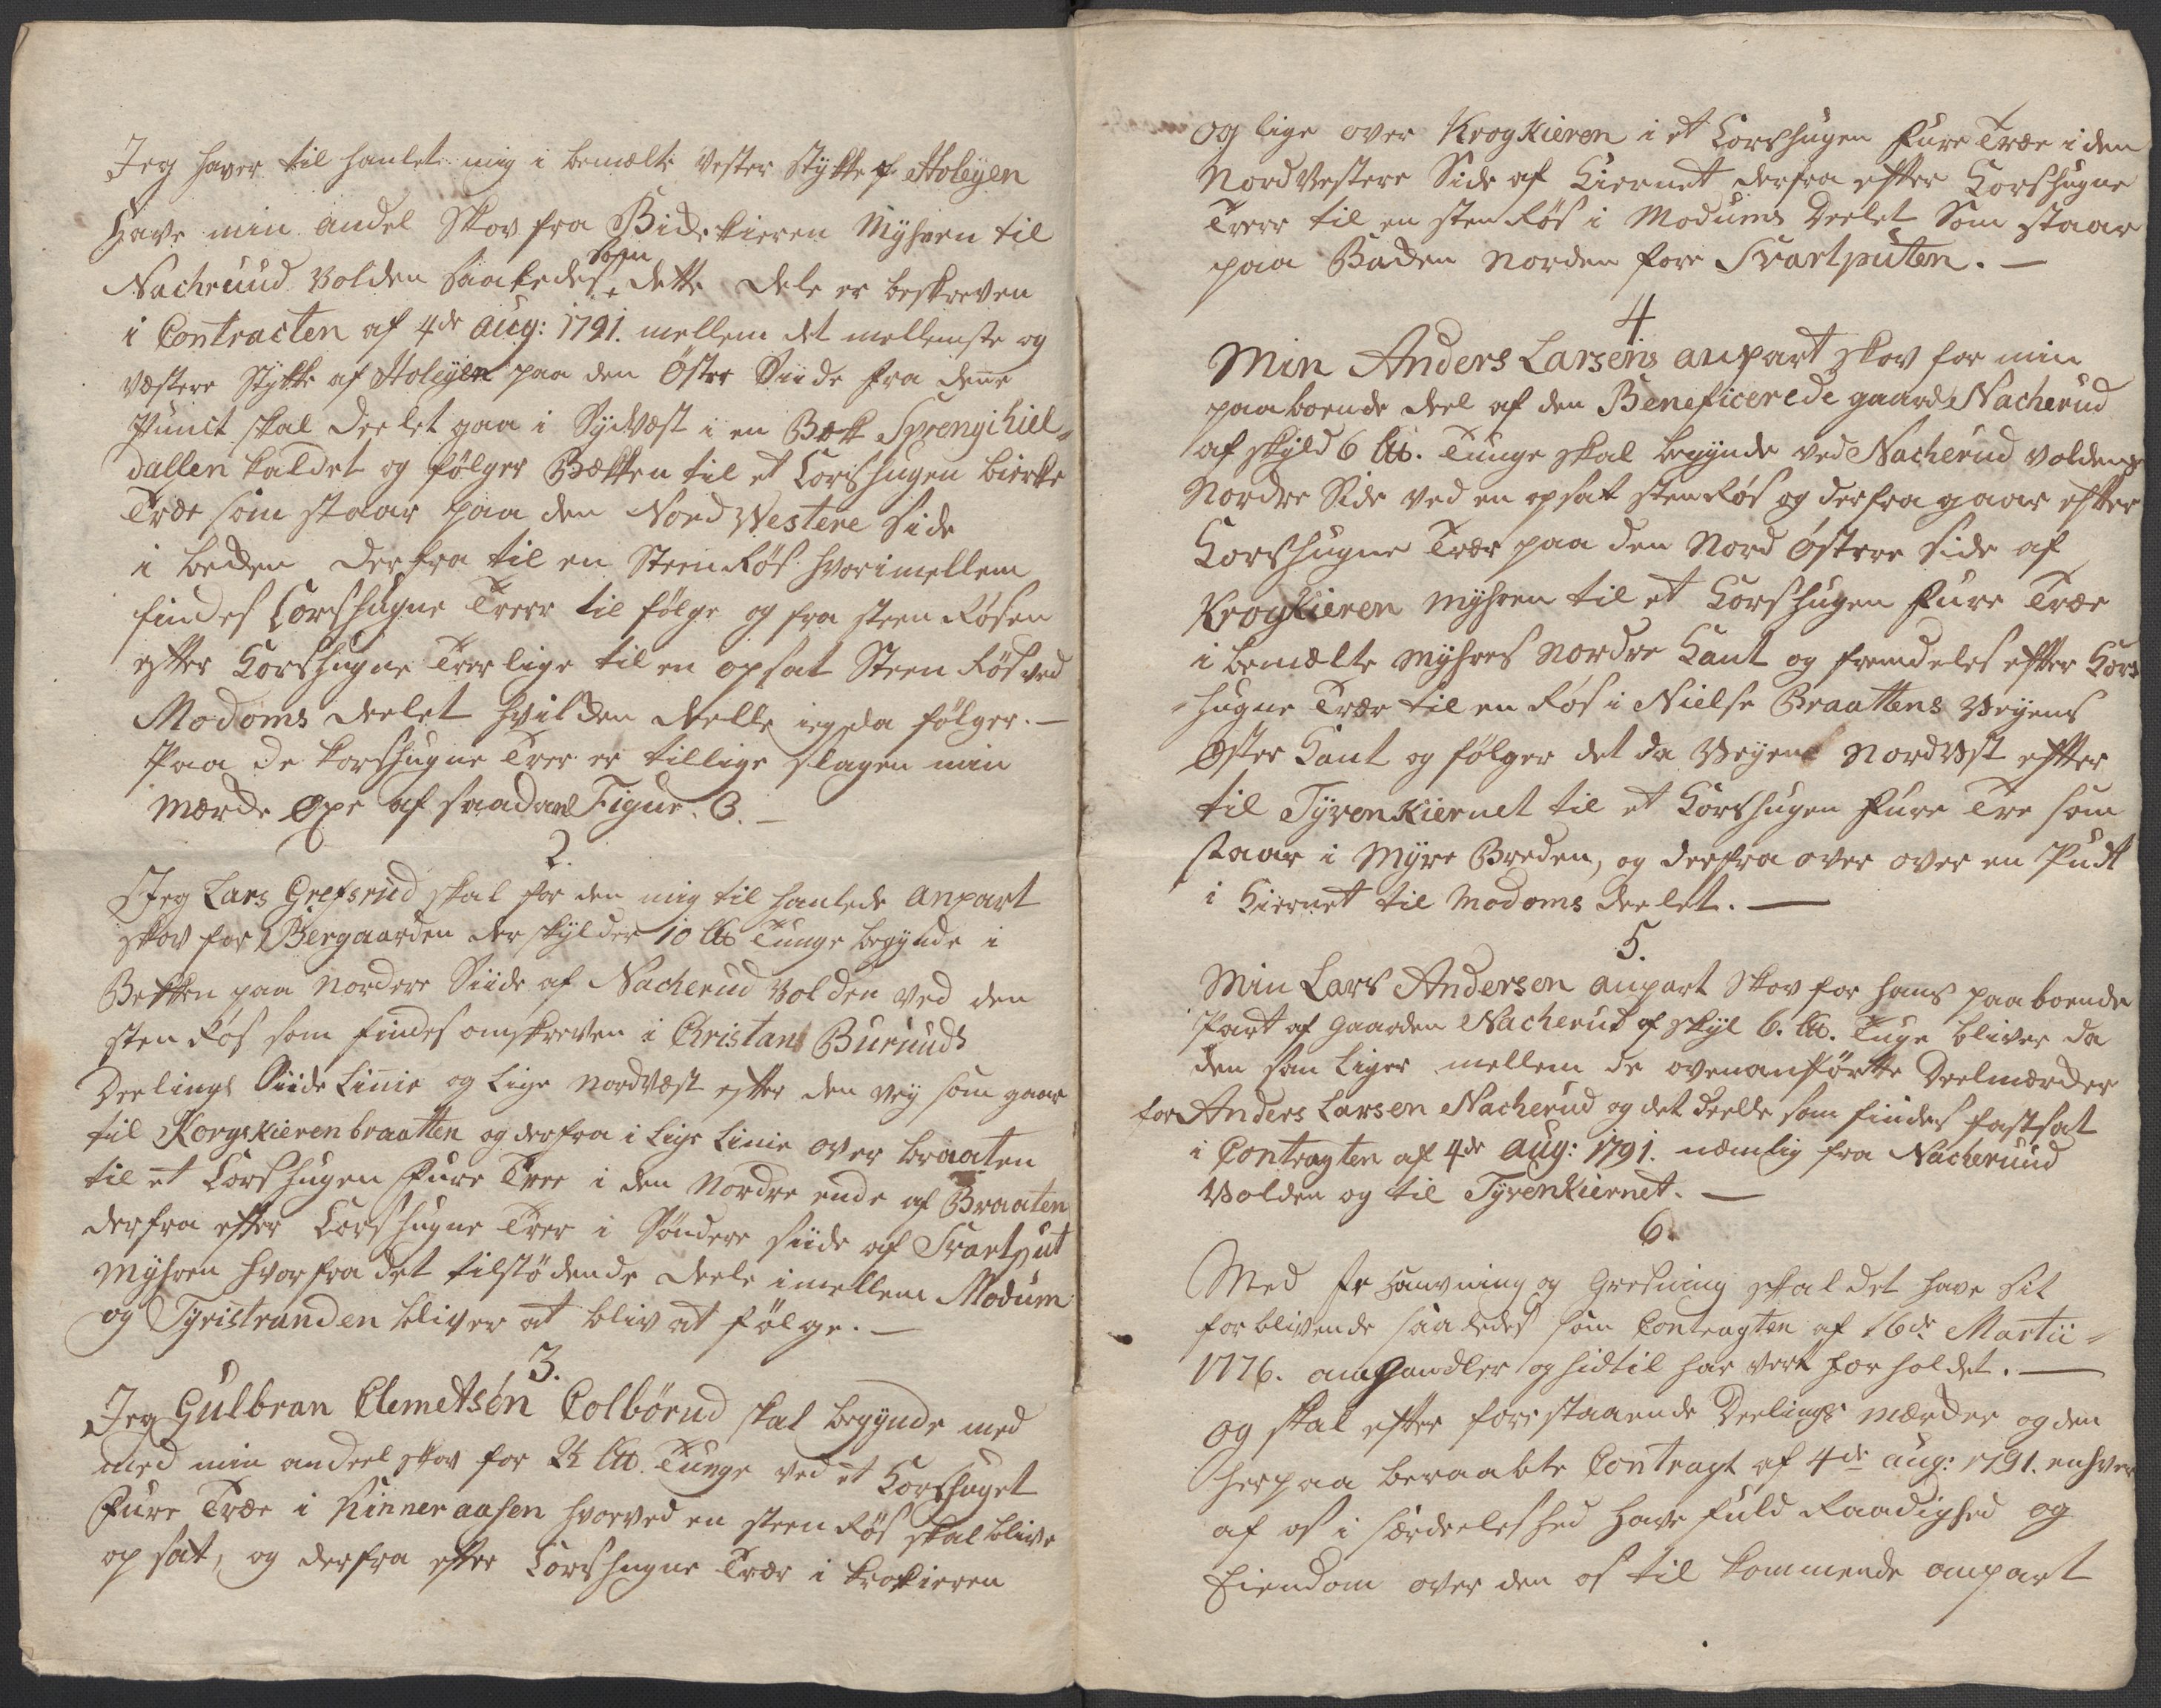 Jeg haver til hanlet mig i bemælte vester Stykke af Holeyen
Have min andel Skov fra Bidekieren Myhren til
Nacherud Volden saaledes som dette dele er beskreven
i Contracten af 4de Aug: 1791. mellem det mellemste og
væstere Stykke af Holeyen paa den Östre Siide fra dene
Punct skal deelet gaa i Sydvæst i en Bæk Sprengihiel-
dallen kaldet og følger Bækken til et Corshugen bierke
Træe som staar paa den Nord Westere Side
i bekken derfra til en Steen Røs hvorimellem
findes Corshugne Treer til følge og fra steen Røsen
efter Corshugne Treer lige til en opsat Steen Røs ved
Modoms deelet hvilden deelle ieg da følger. —
Paa de korshugne Treer er tillige slagen min
Mærke Öxe af saadan Figur. B. —
2.
Jeg Lars Grefsrud skal for den mig til hanlede anpart
skov for Bergaarden der skylder 10 lb Tunge begynde i
Bekken paa nordere Siide af Nacherud Volden ved den
sten Røs som findes omskreven i Christans Buruuds
Deelings Siide Linie og Lige nordvæst efter den vey som gaar
til Korgekierenbraatten og derfra i Lige Linie over braaten
til et Corshugen Fure Tree i den Nordre ende af Braaten
derfra efter Corshugne Treer i Söndere siide af Svartput
Myhren hvorfra det tilstödende deele imellem Modum
og Tyristranden bliver at bliv at følge. —
3.
Jeg Gulbran Clemetsön Colbörud skal begynde med
med min andeel skov for 2½ lb. Tunge ved et Korshuget
Fure Træe i Kinneraasen hvorved en steen Røs skal blive
op sat, og derfra efter Corshugne Træer i krokieren
og lige over Krogkieren i et Corshugen Fure Træe i den
Nordvestere Side af Kiernet derfra efter Korshugne
Treer til en sten Røs i Modums Deelet Som staar
paa Bakken norden fore Svartputen. —
4
Min Anders Larsens anpart skov for min
paaboende deel af den Beneficerede gaard Nacherud
af skyld 6 lb. Tunge skal begynde ved Nacherud voldens
Nordre Side ved en opsat sten Røs og derfra gaar efter
Korshugne Træer paa den Nord östere side af
Krogkieren myhren til et Corshugen Fure Træe
i bemælte myhres nordre Kant og fremdeles efter Kors
-hugne Træer til en Røs i Nielse Braattens Veyens
Öster Kant og følger det da Veyens Nordvest efter
til Tyrenkiernet til et Corshugen Fure Tre som
staar i Myre Breden, og derfra over over en Pudt
i Kiernet til Modoms deelet. —
5.
Min Lars Andersen anpart Skov for hans paaboende
Part af Gaarden Nacherud af skyl 6. lb. Tuge bliver da
den som Liger mellem de ovenanförtte Deelmærker
for Anders Larsen Nacherud og det deelle som findes fastsat
i Contragten af 4de Aug: 1791. nemlig fra Nacheruud
Volden og til Tyrenkiernet. —
6.
Med Fe Havning og Gresning skal det have sit
forblivende saaledes som Contragten af 16de Martii-
1776. omhandler og hidtil har vert forholdet. —
og skal efter forestaaende Deelings mærker og den
herpaa beraabte Contragt af 4de aug: 1791. enhver
af os i særdeeleshed have fuld Raadighed og
Eiendom over den os til kommende anpart